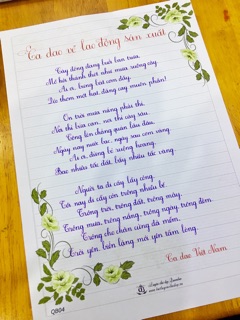 Ca dao về lao động sản xuất
Cày đồng đang buổi ban trưa,
Mồ hôi thánh thót như mưa ruộng cày.
Ai ơi, bưng bát cơm đầy,
Dẻo thơm một hạt, đắng cay muôn phần!
Ơn trời mưa nắng phải thì,
Nơi thì bừa cạn, nơi thì cày sâu.
Công lên chẳng quản lâu đâu,
Ngày nay nước bạc, ngày sau cơm vàng.
Ai ơi, đừng bỏ ruộng hoang,
Bao nhiêu tấc đất, tấc vàng bấy nhiêu.
Người ta đi cấy lấy công,
Tôi nay đi cấy còn trông nhiều bề.
Trông trời, trông đất, trông mây,
Trông mưa, trông nắng, trông ngày, trông đêm.
Trông cho chân cứng đá mềm,
Trời yên, biển lặng mới yên tấm lòng.
Ca dao Việt Nam
QB04